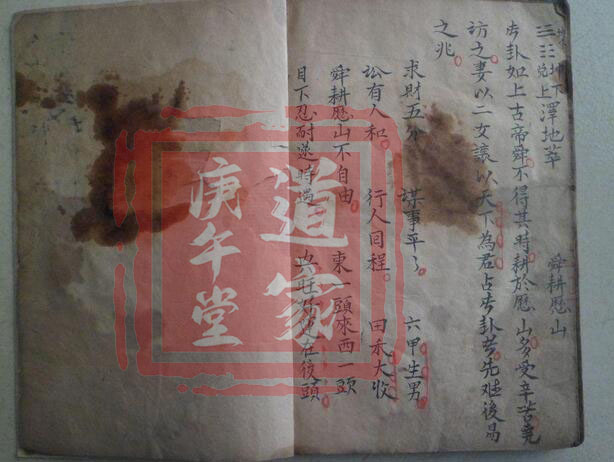 坤下兌上 澤地萃 舜耕厯山
占卦如上古帝舜不得其時耕於厯山多受辛苦堯
訪之妻以二女讓以天下為君占此卦者先难後易
之兆
求財五分 謀事平了 六甲生男
訟有人和 行人回程 田禾大收
舜耕厯山不自由 東一頭來西一頭
目下忍耐 在後頭
道家
庚午堂